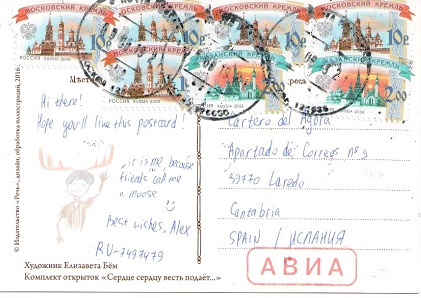 МОСКОВСКИЙ КРЕМЛЬ
МОСКОВСКИЙ КРЕМЛЬ
МОСКОВСКИЙ КРЕМЛЬ
МОСКОВСКИЙ КРЕМЛЬ
10р
10р
10р
10р
РОССИЯ RUSSIA 2009
МОСКОВСКИЙ КРЕМЛЬ
КАЗАНСКИЙ КРЕМЛЬ
КАЗАНСКИЙ КРЕМЛЬ
10р
2.00
РОССИЯ RUSSIA 2009
РОССИЯ RUSSIA 2009
Hi there!
Hope you'll like this postcard!
it is me, because
friends call me
a moose
Best wishes, Alex
RU-7497479
Cartero del Agora
Apartado de Correos nº 9
39770 Laredo
Cantabria
SPAIN / ИСПАНИЯ
АВИА
© Издательство «Речь», дизайн, обработка иллюстраций, 2016
Художник Елизавета Бём
Комплект открыток «Сердце сердцу весть подаёт...»